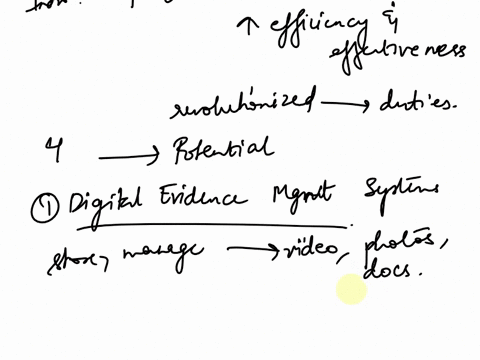 ↑ efficiency &
effectiveness
revolutionized → duties.
4 → Potential
① Digital Evidence Mgmt Systems
store, manage → video, photos,
docs.